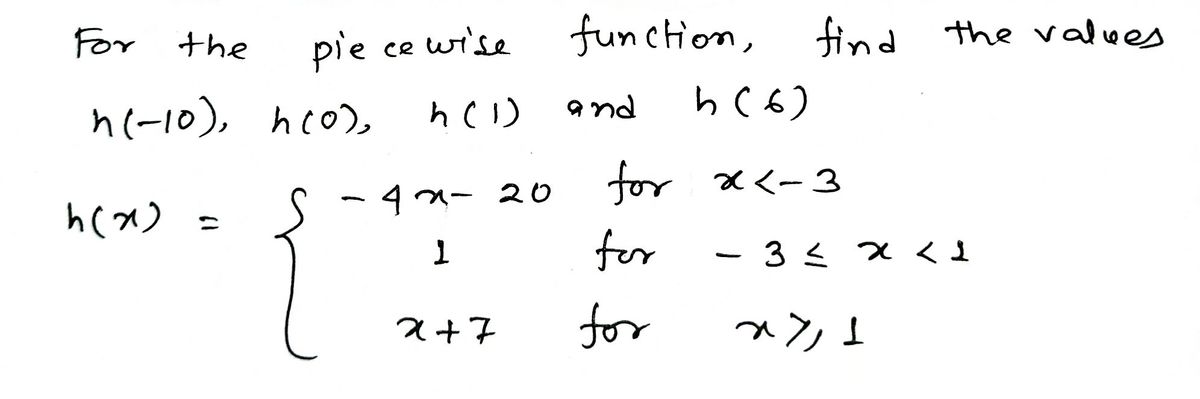 For the piecewise function, find the values
h(-10), h(0), h(1) and h(6)
h(x) = { -4x - 20 for x < -3
1 for -3 ≤ x < 1
x + 7 for x ≥ 1